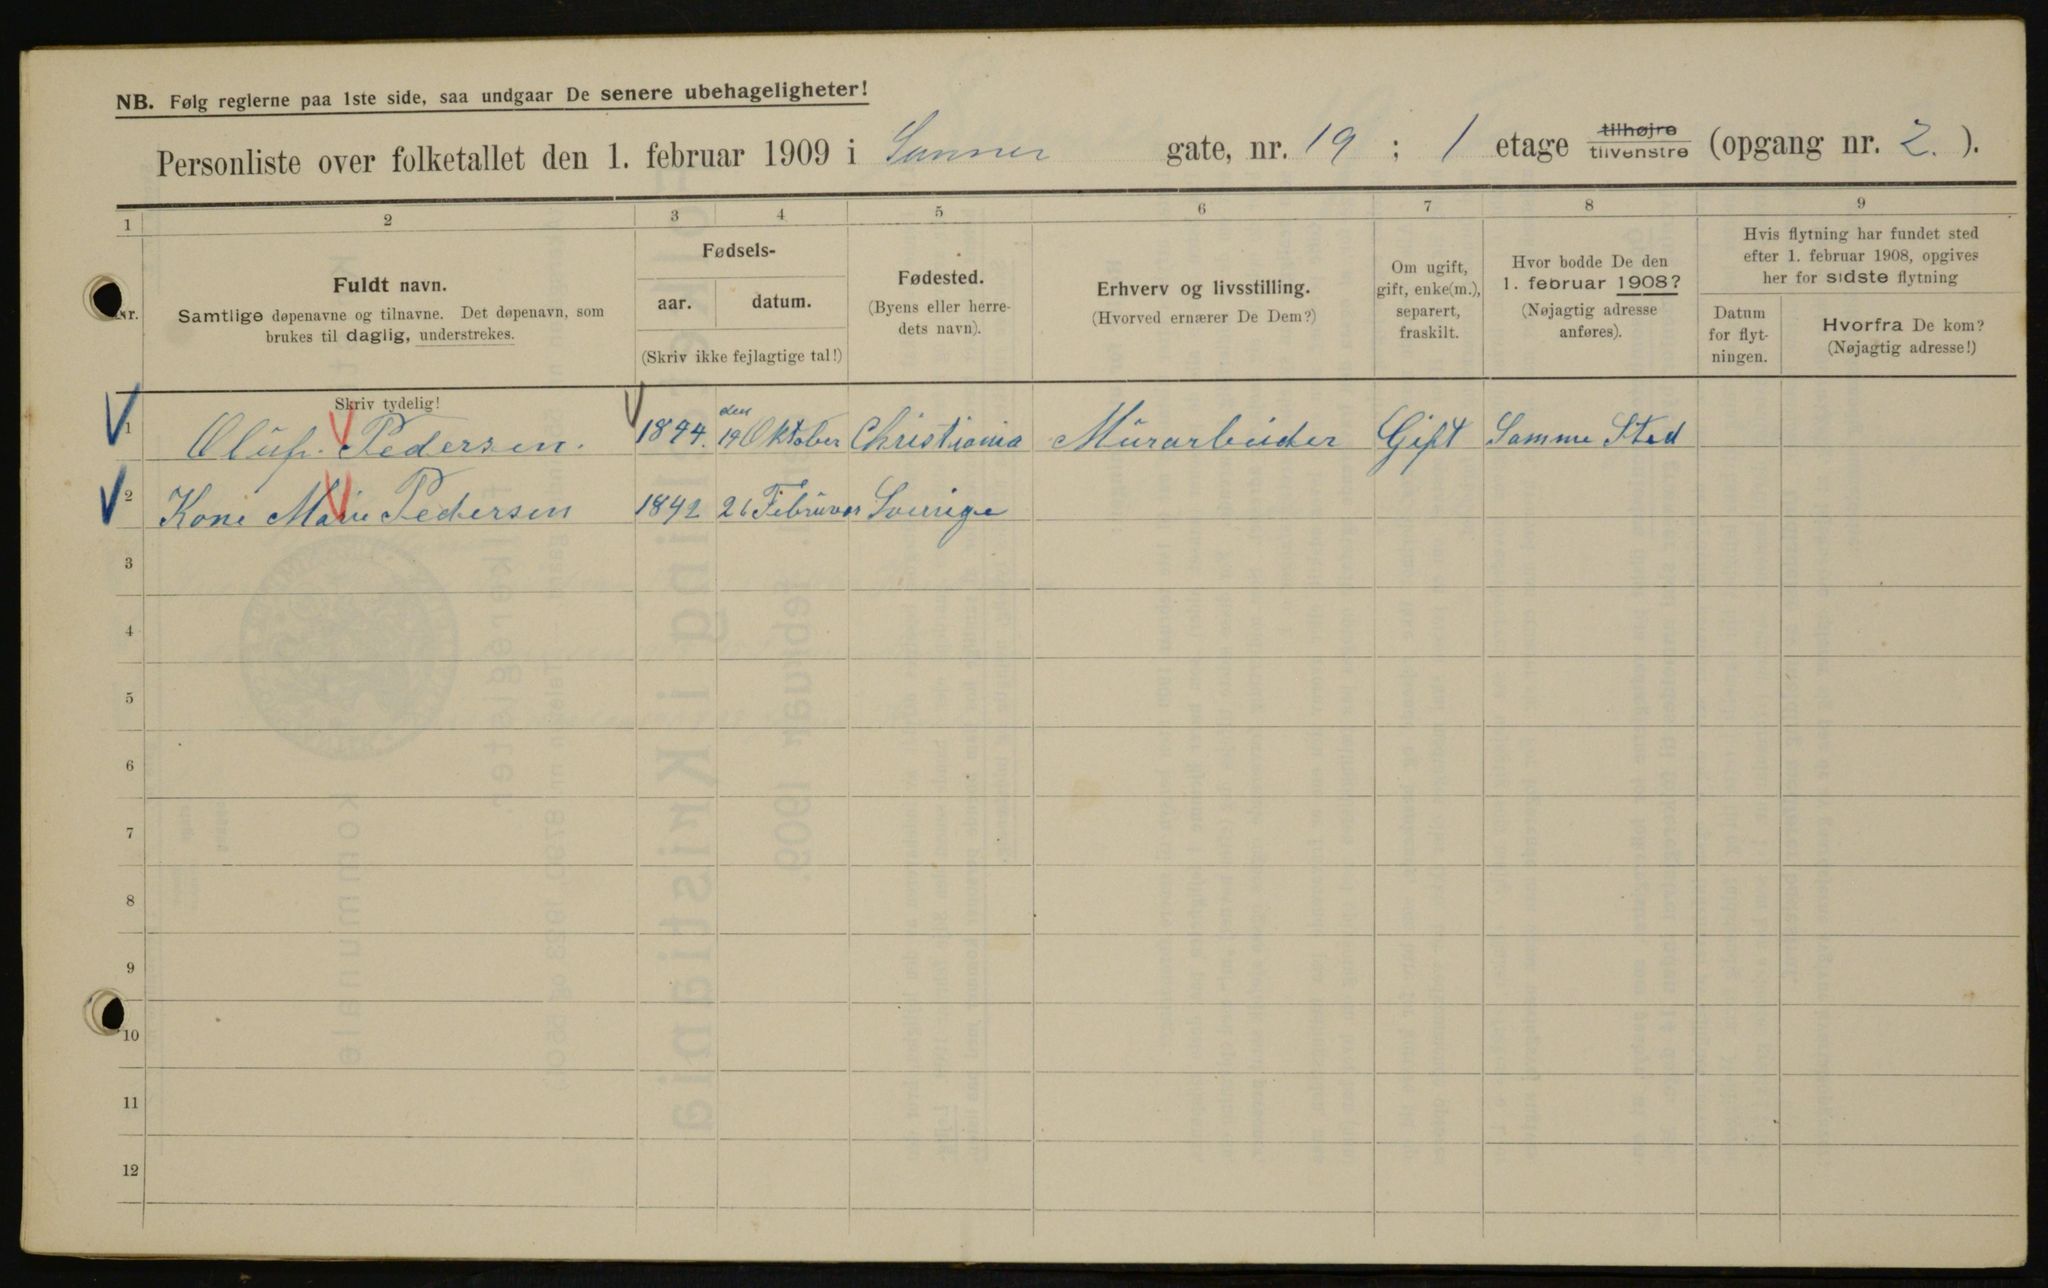 NB. Følg reglerne paa 1ste side, saa undgaar De senere ubehageligheter!
Personliste over folketallet den 1. februar 1909 i Sanner gate, nr. 19 ; 1 etage tilhøjre tilvenstre (opgang nr. 2. ).
1 2 3 4 5 6 7 8 9
Nr.
Fuldt navn.
Samtlige døpenavne og tilnavne. Det døpenavn, som
brukes til daglig, understrekes.
Fødsels-
aar. datum.
(Skriv ikke fejlagtige tal!)
Fødested.
(Byens eller herre-
dets navn).
Erhverv og livsstilling.
(Hvorved ernærer De Dem?)
Om ugift,
gift, enke(m.),
separert,
fraskilt.
Hvor bodde De den
1. februar 1908?
(Nøjagtig adresse
anføres).
Hvis flytning har fundet sted
efter 1. februar 1908, opgives
her for sidste flytning
Datum
for flyt-
ningen.
Hvorfra De kom?
(Nøjagtig adresse!)
Skriv tydelig!
1 Oluf. Pedersen. 1844. den 19 Oktober Christiania Mürarbeider Gift Samme Sted
2 Kone Marie Pedersen 1842 26 Februar Sverige
3
4
5
6
7
8
9
10
11
12